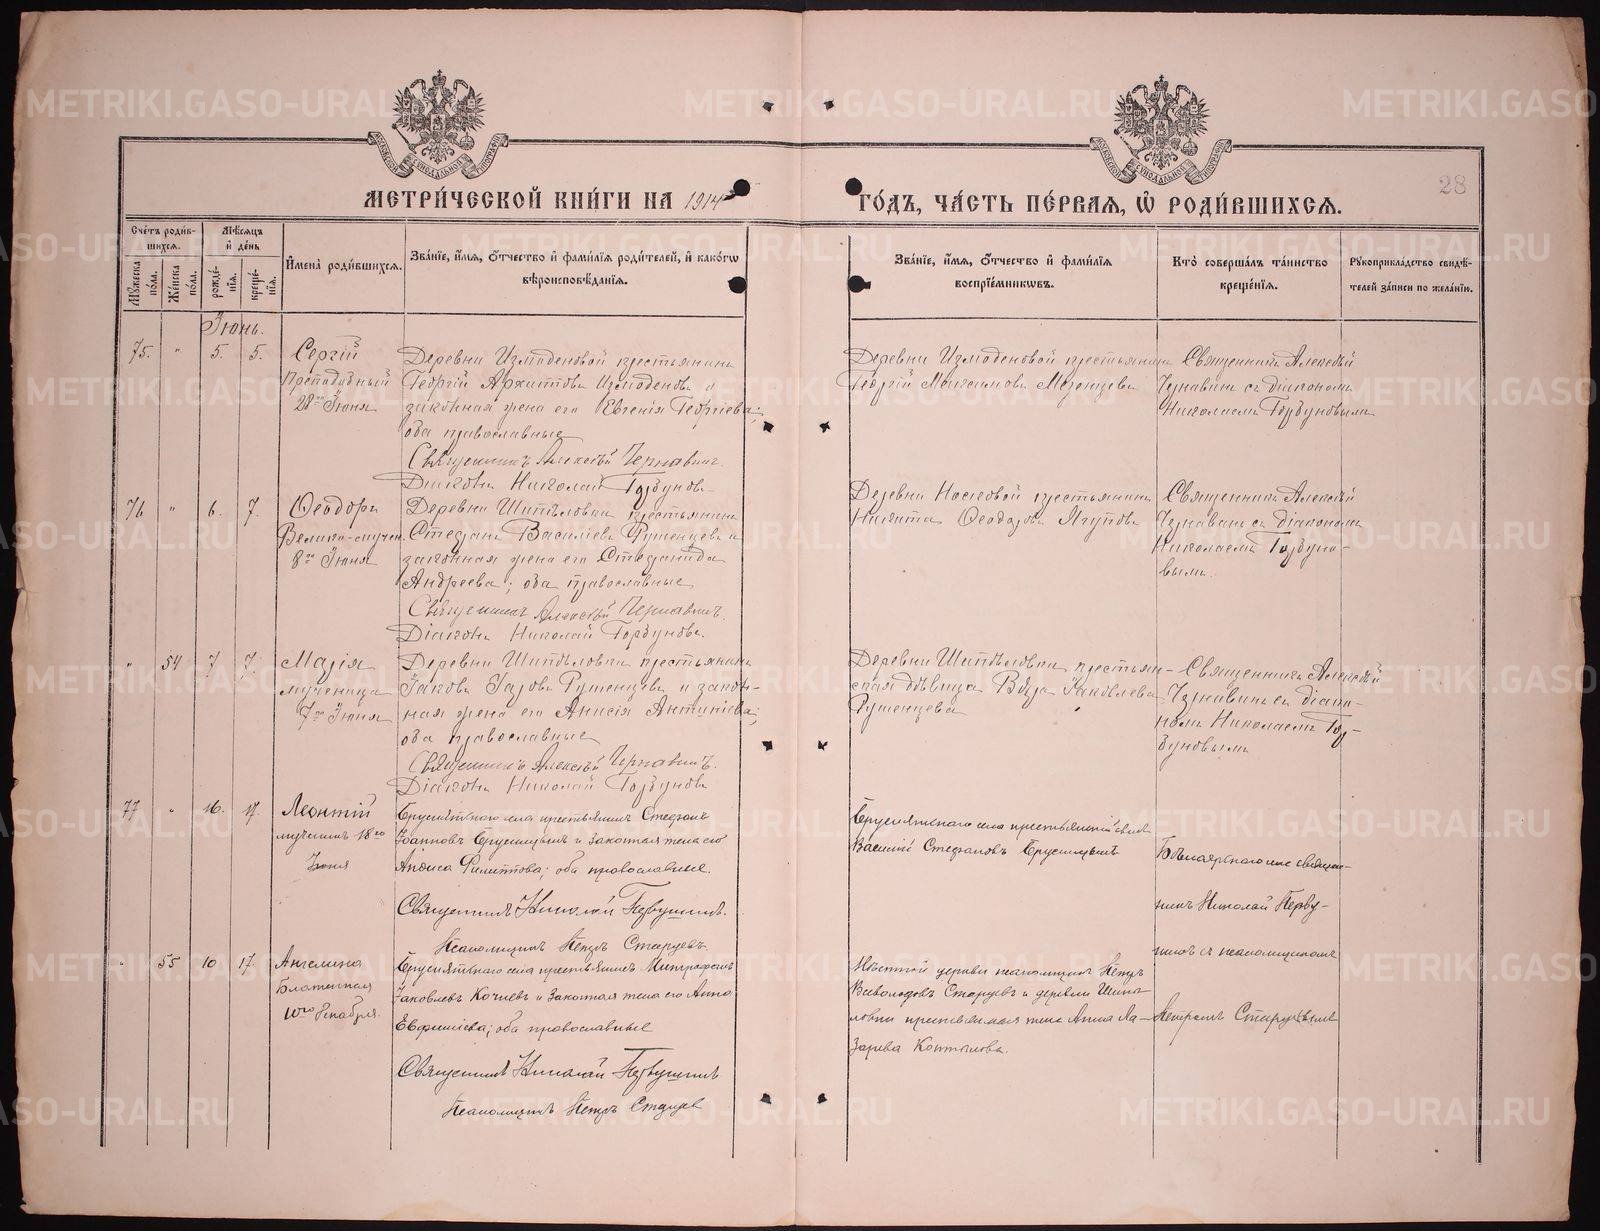 МЕТРИЧЕСКОЙ КНИГИ НА 1914
ГОДЪ, ЧАСТЬ ПЕРВАЯ, Ѿ РОДИВШИХСЯ.
28
Счетъ родив-
шихся.
Мѣсяцъ
и день
Мужеска
пола.
Женска
пола.
рожде-
нія.
креще-
нія.
Имена родившихся.
Званіе, имя, отчество и фамилія родителей, и какогѡ
вѣроисповѣданія.
Званіе, имя, отчество и фамилія
воспріемниковъ.
Кто совершалъ таинство
крещенія.
Рукоприкладство свидѣ-
телей записи по желанію.
Іюнь.
75. " 5. 5.
Сергій
Преподобный
28го Іюня
Деревни Измоденовой крестьянинъ
Георгій Архиповъ Измоденовъ и
законная жена его Евгенія Георгіева;
оба православные
Священникъ Алексѣй Чернавинъ.
Діаконъ Николай Горбуновъ
Деревни Измоденовой крестьянинъ
Георгій Максимовъ Мезенцевъ
Священникъ Алексѣй
Чернавинъ съ діакономъ
Николаемъ Горбуновымъ
76 " 6. 7.
Ѳеодоръ
Велико-мучен.
8го Іюня
Деревни Шипѣловки крестьянинъ
Стефанъ Василіевъ Рушенцевъ и
законная жена его Стефанида
Андреева; оба православные
Священникъ Алексѣй Чернавинъ.
Діаконъ Николай Горбуновъ.
Деревни Носковой крестьянинъ
Никита Ѳеодоровъ Ягуповъ
Священникъ Алексѣй
Чернавинъ съ діакономъ
Николаемъ Горбуно-
вымъ.
" 54 7 7.
Марія
мученица
7го Іюня
Деревни Шипѣловки крестьянинъ
Іаковъ Рушенцевъ и закон-
ная жена его Анисія Антипіева;
оба православные
Священникъ Алексѣй Чернавинъ.
Діаконъ Николай Горбуновъ
Деревни Шипѣловки крестьян-
ская дѣвица Вѣра Іаковлева
Рушенцева
Священникъ Алексѣй
Чернавинъ съ діако-
номъ Николаемъ Гор-
буновымъ
77 " 16. 17.
Леонтій
мученикъ 18го
Іюня
Брусянскаго села крестьянинъ Стефанъ
Іоанновъ Брусницынъ и законная жена его
Анфиса Филиппова; оба православные.
Священникъ Николай Первушинъ.
Псаломщикъ Петръ Старцевъ.
Брусянскаго села крестьянскій сынъ
Василій Стефановъ Брусницынъ
Бѣлоярскаго села священ-
никъ Николай Перву-
шинъ съ псаломщикомъ
" 55 10 17.
Ангелина
Блаженная
10го Декабря.
Брусянскаго села крестьянинъ Митрофанъ
Іаковлевъ Кочневъ и законная жена его Анна
Евфиміева; оба православные
Священникъ Николай Первушинъ
Псаломщикъ Петръ Старцевъ
Мѣстной церкви псаломщикъ Петръ
Всеволодовъ Старцевъ и деревни Шипѣ-
ловки крестьянская жена Анна Ла-
зарева Коптѣлова.
Петромъ Старцевымъ